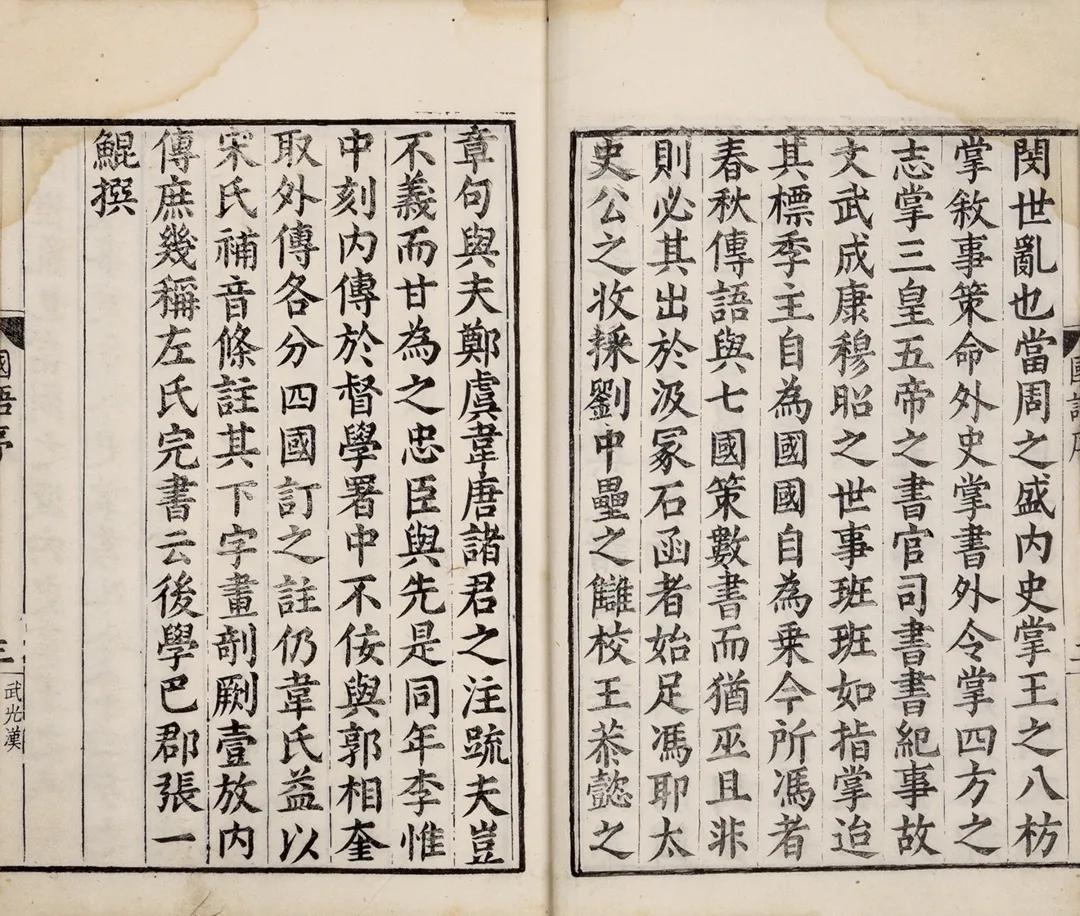 閔世亂也當周之盛内史掌王之八枋
掌敘事策命外史掌書外令掌四方之
志掌三皇五帝之書官司書書紀事故
文武成康穆昭之世事班班如指掌迨
其標季主自為國國自為乗今所馮者
春秋傳語與七國策數書而猶巫且非
則必其出於汲冢石函者始足馮耶太
史公之收採劉中壘之讎校王莽懿之
章句與夫鄭虞韋唐諸君之注䟽夫豈
不義而甘為之忠臣與先是同年李惟
中刻内傳於督學署中不佞與郭相奎
取外傳各分四國訂之註仍韋氏益以
宋氏補音條註其下字畫剞劂壹放内
傳庶幾稱左氏完書云後學巴郡張一
鯤撰
國語序
三
武光漢